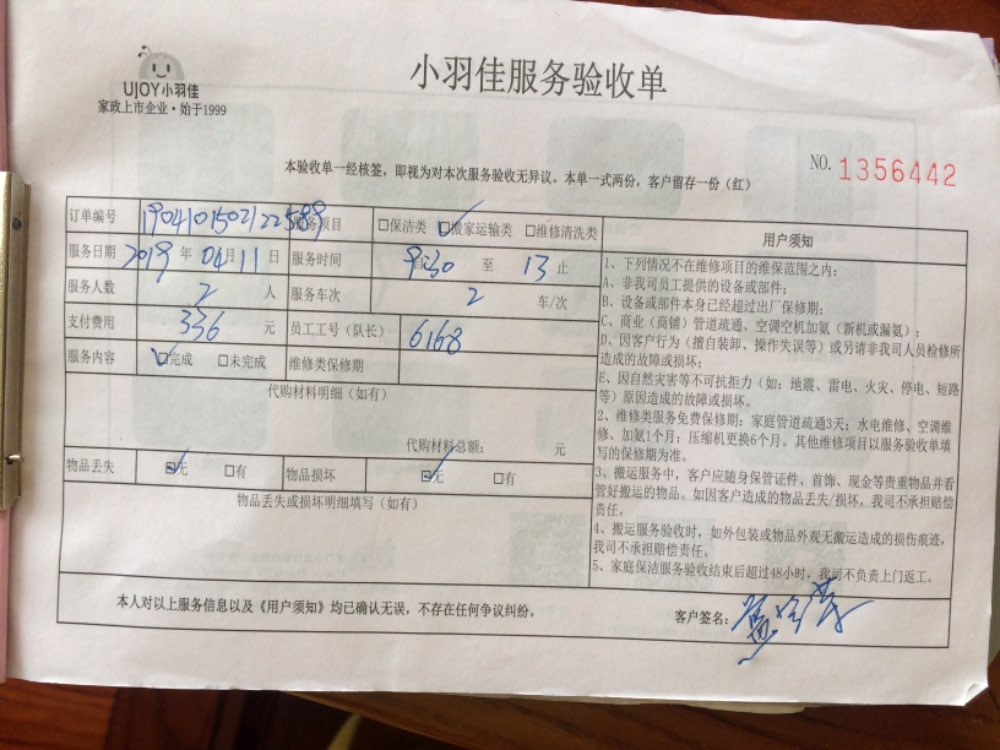 UJOY小羽佳
家政上市企业·始于1999
小羽佳服务验收单
NO. 1356442
本验收单一经核签，即视为对本次服务验收无异议。本单一式两份，客户留存一份（红）
订单编号 190410150212258589 服务项目 □保洁类 □搬家运输类 □维修清洗类
服务日期 2019 年 04 月 11 日 服务时间 9:30 至 13 止
服务人数 2 人 服务车次 2 车/次
支付费用 336 元 员工工号（队长） 6168
服务内容 □完成 □未完成 维修类保修期
代购材料明细（如有）
代购材料总额： 元
物品丢失 □无 □有 物品损坏 □无 □有
物品丢失或损坏明细填写（如有）
用户须知
1、下列情况不在维修项目的维保范围之内：
A、非我司员工提供的设备或部件；
B、设备或部件本身已经超过出厂保修期；
C、商业（商铺）管道疏通、空调空机加氨（新机或漏氨）；
D、因客户行为（擅自装卸、操作失误等）或另请非我司人员检修所
造成的故障或损坏；
E、因自然灾害等不可抗拒力（如：地震、雷电、火灾、停电、短路
等）原因造成的故障或损坏。
2、维修类服务免费保修期：家庭管道疏通3天；水电维修、空调维
修、加氨1个月；压缩机更换6个月。其他维修项目以服务验收单填
写的保修期为准。
3、搬运服务中，客户应随身保管证件、首饰、现金等贵重物品并看
管好搬运的物品。如因客户造成的物品丢失/损坏，我司不承担赔偿
责任。
4、搬运服务验收时，如外包装或物品外观无搬运造成的损伤痕迹，
我司不承担赔偿责任。
5、家庭保洁服务验收结束后超过48小时，我司不负责上门返工。
本人对以上服务信息以及《用户须知》均已确认无误，不存在任何争议纠纷。
客户签名：